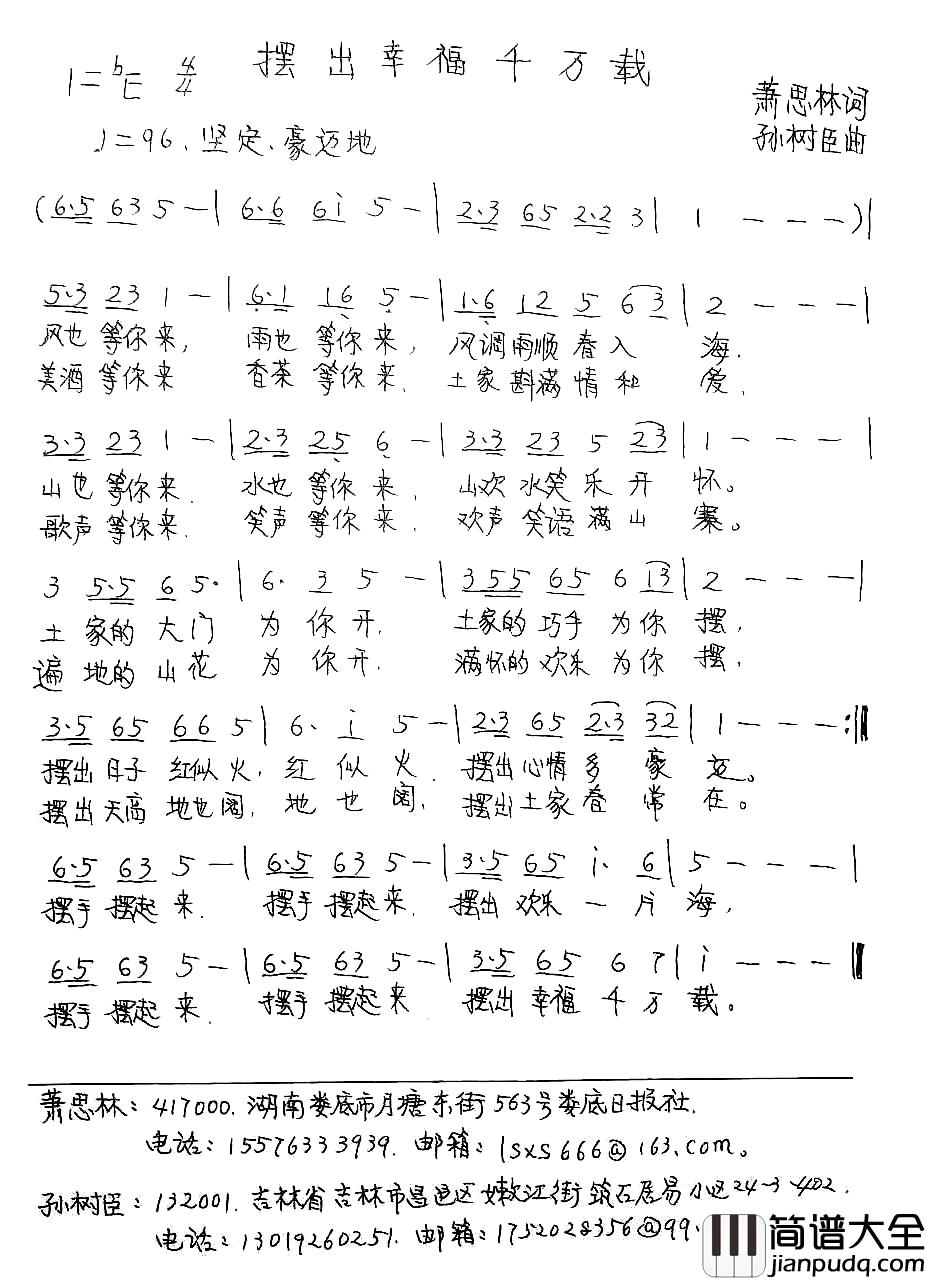 摆出幸福千万载
1=bE 4/4
萧思林词
孙树臣曲
♩=96、坚定、豪迈地
(6·5 63 5 — | 6·6 6i 5 — | 2·3 65 2·2 3 | 1 — — — )|
5·3 23 1 — | 6·1 16 5 — | 1·6 12 5 63 | 2 — — — |
风也等你来, 雨也等你来, 风调雨顺春入海.
美酒等你来 香茶等你来. 土家斟满情和爱.
3·3 23 1 — | 2·3 25 6 — | 3·3 23 5 23 | 1 — — — |
山也等你来. 水也等你来, 山欢水笑乐开怀。
歌声等你来. 笑声等你来. 欢声笑语满山寨。
3 5·5 6 5· | 6· 3 5 — | 3 55 65 6 i3 | 2 — — — |
土家的大门为你开. 土家的巧手为你摆,
遍地的山花为你开. 满怀的欢乐为你摆,
3·5 65 66 5 | 6· i 5 — | 2·3 65 2·3 32 | 1 — — — :‖
摆出日子红似火, 红似火. 摆出心情多豪迈。
摆出天高地也阔, 地也阔, 摆出土家春常在。
6·5 63 5 — | 6·5 63 5 — | 3·5 65 i· 6 | 5 — — — |
摆手摆起来. 摆手摆起来. 摆出欢乐一片海,
6·5 63 5 — | 6·5 63 5 — | 3·5 65 6 7 | i — — — ‖
摆手摆起来. 摆手摆起来 摆出幸福千万载。
萧思林: 417000. 湖南娄底市月塘东街563号娄底日报社.
电话: 15576333939. 邮箱: lsxs666@163.com。
孙树臣: 132001. 吉林省吉林市昌邑区嫩江街筑石居易小区24-3-402.
电话: 13019260251. 邮箱: 1752028356@99.
简谱大全
jianpudq.com